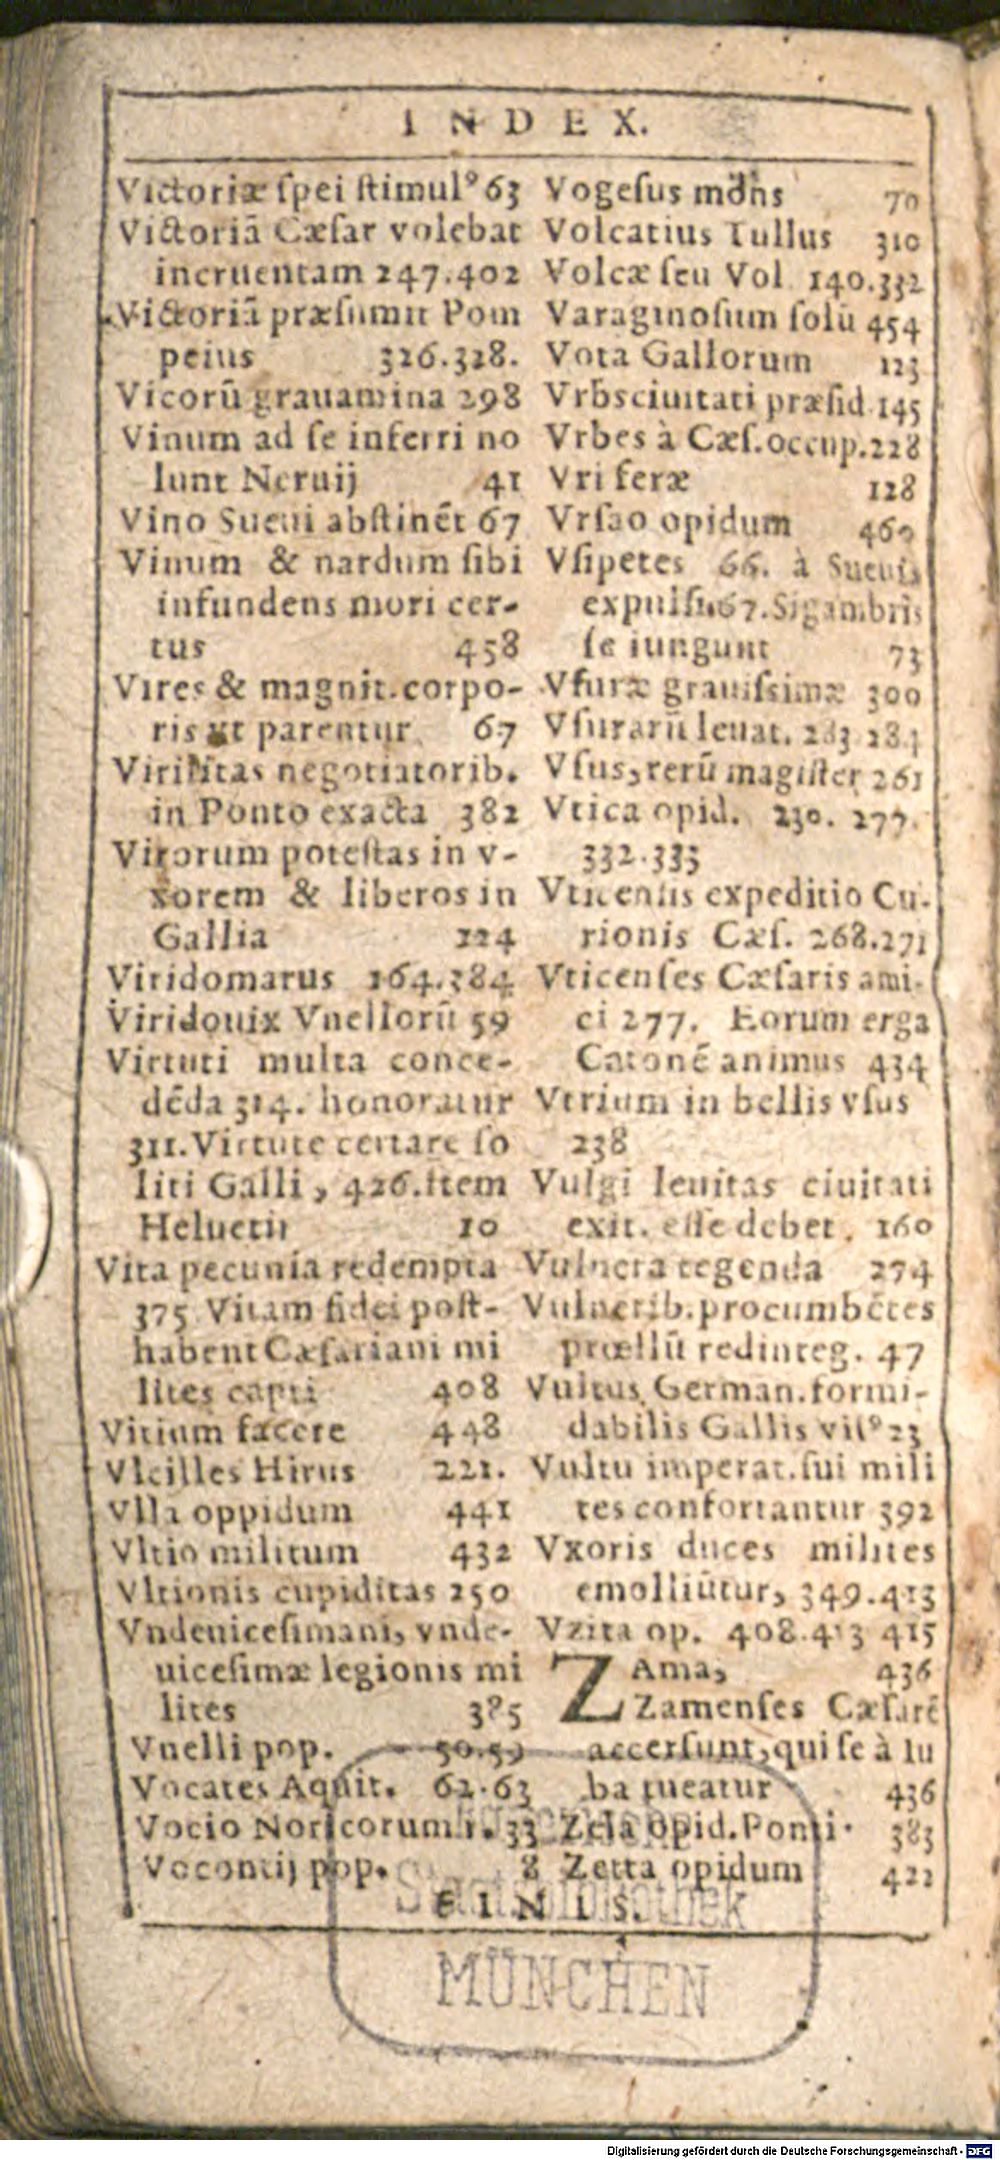 INDEX.
Victoriæ ſpei ſtimulꝰ 63
Victoriā Cæſar volebat
incruentam 247.402
Victoriā præſumit Pom
peius 326.328.
Vicorū grauamina 298
Vinum ad ſe inferri no
lunt Neruij 41
Vino Sueui abſtinēt 67
Vinum & nardum ſibi
infundens mori cer-
tus 458
Vires & magnit.corpo-
ris vt parentur 67
Viritas negotiatorib.
in Ponto exacta 382
Virorum poteſtas in v-
xorem & liberos in
Gallia 124
Viridomarus 164.384
Viridouix Vnellorū 59
Virtuti multa conce-
dēda 314. honoratur
311.Virtute certare ſo
liti Galli, 426.Item
Heluetii 10
Vita pecunia redempta
375 Vitam fidei poſt-
habent Cæſariani mi
lites capti 408
Vitium facere 448
Vlcilles Hirus 221.
Vlla oppidum 441
Vltio militum 432
Vltionis cupiditas 250
Vndeuiceſimani, vnde-
uiceſimæ legionis mi
lites 385
Vnelli pop. 50.59
Vocates Aquit. 62.63
Vocio Noricorum r. 33
Vocontij pop. 8
Vogeſus mons 70
Volcatius Tullus 310
Volcæ ſeu Vol 140.332
Varaginoſum ſolū 454
Vota Gallorum 123
Vrbsciuitati præſid.145
Vrbes à Cæſ.occup.228
Vri feræ 128
Vrſao opidum 460
Vſipetes 66. à Sueuis
expulſi 67.Sigambris
ſe iungunt 73
Vſuræ grauiſsimæ 300
Vſurarū leuat. 283 284
Vſus, rerū magiſter 261
Vtica opid. 230. 277.
332.333
Vticenſis expeditio Cu-
rionis Cæſ. 268.271
Vticenſes Cæſaris ami-
ci 277. Eorum erga
Catonē animus 434
Vtrium in bellis vſus
238
Vulgi leuitas ciuitati
exit. eſſe debet. 160
Vulnera tegenda 274
Vulnerib.procumbētes
prœliū redinteg. 47
Vultus German.formi-
dabilis Gallis viſꝰ 23
Vultu imperat.ſui mili
tes confortantur 392
Vxoris duces milites
emolliūtur, 349.413
Vzita op. 408.413 415
ZAma, 436
Zamenſes Cæſarē
accerſunt, qui ſe à Iu
ba tueatur 436
Zela opid.Ponti. 383
Zetta opidum 422
FINIS.
Staatsbibliothek
MÜNCHEN
Digitalisierung gefördert durch die Deutsche Forschungsgemeinschaft - DFG